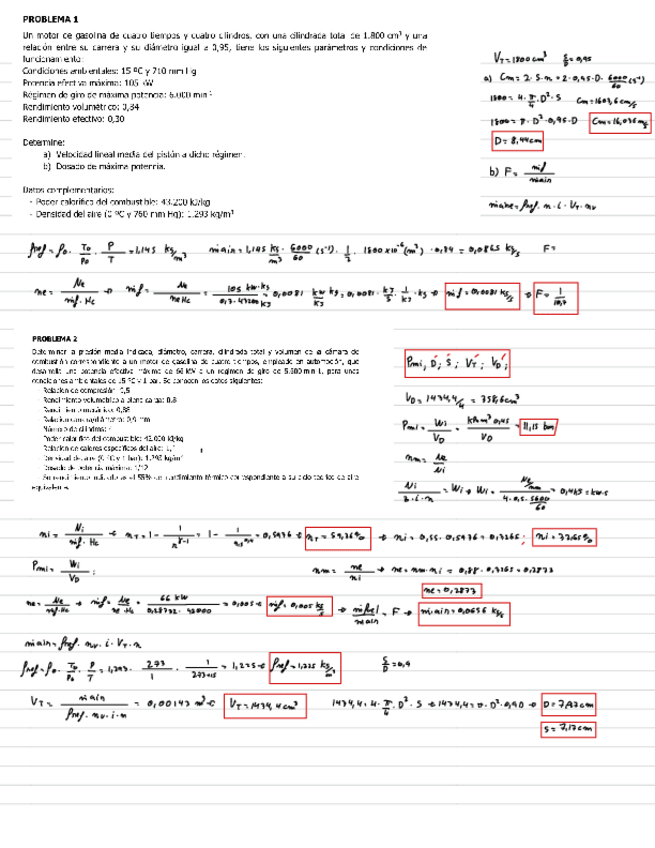 PROBLEMA 1
Un motor de gasolina de cuatro tiempos y cuatro cilindros, con una cilindrada total de 1.800 cm³ y una
relación entre su carrera y su diámetro igual a 0,95, tiene los siguientes parámetros y condiciones de
funcionamiento:
Condiciones ambientales: 15 ºC y 710 mm Hg
Potencia efectiva máxima: 105 kW
Régimen de giro de máxima potencia: 6.000 min⁻¹
Rendimiento volumétrico: 0,84
Rendimiento efectivo: 0,30
Determine:
a) Velocidad lineal media del pistón a dicho régimen.
b) Dosado de máxima potencia.
Datos complementarios:
- Poder calorífico del combustible: 43.200 kJ/kg
- Densidad del aire (0 ºC y 760 mm Hg): 1,293 kg/m³
V_T = 1800 cm³ S/D = 0,95
a) Cm = 2 · S · n = 2 · 0,95 · D · 6000/60 (s⁻¹)
1800 = 4 · π/4 · D² · S Cm = 1603,6 cm/s
1800 = π · D² · 0,95 · D Cm = 16,036 m/s
D = 8,44 cm
b) F = ṁf/ṁain
ṁaire = ρref · n · i · V_T · nv
ρref = ρo · To/Po · P/T = 1,145 kg/m³ ṁain = 1,145 kg/m³ · 6000/60 (s⁻¹) · 1/2 · 1800 x10⁻⁶ (m³) · 0,84 = 0,0865 kg/s F =
ne = Ne/ṁf · Hc → ṁf = Ne/ne Hc = 105 kW · kg/0,3 · 43200 kJ = 0,0081 kW kg/kJ = 0,0081 · kJ/s · 1/kJ · kg → ṁf = 0,0081 kg/s → F = 1/10,7
PROBLEMA 2
Determinar la presión media indicada, diámetro, carrera, cilindrada total y volumen de la cámara de
combustión correspondiente a un motor de gasolina de cuatro tiempos, empleado en automoción, que
desarrolla una potencia efectiva máxima de 66 kW a un régimen de giro de 5.600 min⁻¹, para unas
condiciones ambientales de 15 ºC y 1 bar. Se conocen los datos siguientes:
Relación de compresión: 9,5
Rendimiento volumétrico a plena carga: 0,8
Rendimiento mecánico: 0,88
Relación carrera/diámetro: 0,9
Número de cilindros: 4
Poder calorífico del combustible: 42.000 kJ/kg
Relación de calores específicos del aire: 1,4
Densidad del aire (0 ºC y 1 bar): 1,293 kg/m³
Dosado de potencia máxima: 1/12
Su rendimiento indicado es el 55% del rendimiento térmico correspondiente a su ciclo teórico de aire
equivalente.
Pmi, D, S, V_T, V_D;
V_D = 1434,4/4 = 358,6 cm³
Pmi = Wi/V_D = = 11,15 bar
nm = Ne/Ni
Ni/z · i · n = Wi → Wi = Ne/nm/4 · 0,5 · 5600/60 = 0,465 = kW·s
ni = Ni/ṁf · Hc → n_T = 1 - 1/r^(γ-1) = 1 - 1/9,5^0,4 = 0,5936 → n_T = 59,36% → ni = 0,55 · 0,5936 = 0,3265; ni = 32,65%
Pmi = Wi/V_D; nm = ne/ni → ne = nm · ni = 0,88 · 0,3265 = 0,2873
ne = 0,2873
ne = Ne/ṁf · Hc → ṁf = Ne/ne · Hc = 66 kW/0,28732 · 42000 = 0,005 → ṁf = 0,005 kg/s → ṁfuel/ṁain = F → ṁain = 0,0656 kg/s
ṁain = ρref · nv · i · V_T · n
ρref = ρo · To/Po · P/T = 1,293 · 273/1 · 1/273+15 = 1,225 → ρref = 1,225 kg/m³ S/D = 0,9
V_T = ṁain/ρref · nv · i · n = 0,00143 m³ → V_T = 1434,4 cm³ 1434,4 = 4 · π/4 · D² · S → 1434,4 = π · D² · 0,90 → D = 7,97 cm
S = 7,17 cm